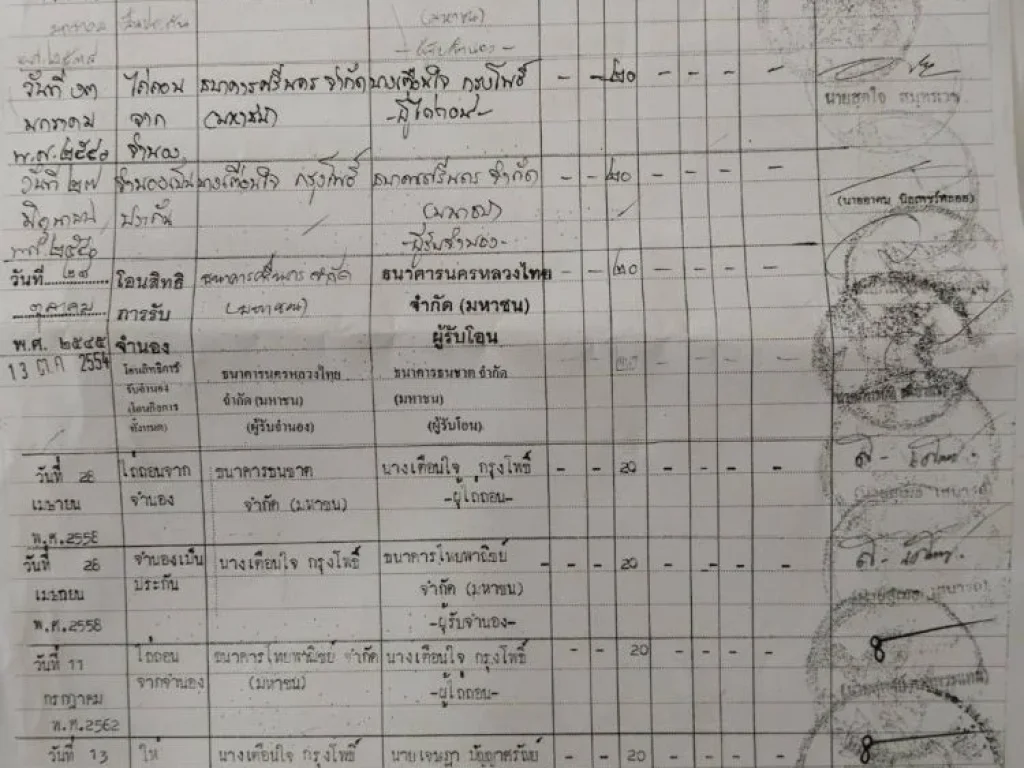 (มหาชน)
-ผู้รับจำนอง-
วันที่ ๑๓ ไถ่ถอน ธนาคารศรีนคร จำกัด นางเตือนใจ กรุงโพธิ์ - - ๒๐ - - - -
มกราคม จาก (มหาชน) -ผู้ไถ่ถอน-
พ.ศ. ๒๕๔๐ จำนอง
วันที่ ๒๗ จำนองเป็น นางเตือนใจ กรุงโพธิ์ ธนาคารศรีนคร จำกัด - - ๒๐ - - - -
ประกัน (มหาชน)
พ.ศ. ๒๕๔๐ -ผู้รับจำนอง-
วันที่ ๒๘ โอนสิทธิ ธนาคารศรีนคร จำกัด ธนาคารนครหลวงไทย - - ๒๐ - - - -
ตุลาคม การรับ (มหาชน) จำกัด (มหาชน)
พ.ศ. ๒๕๔๕ จำนอง ผู้รับโอน
13 ต.ค 2554 โอนสิทธิการ ธนาคารนครหลวงไทย ธนาคารธนชาต จำกัด
รับจำนอง จำกัด (มหาชน) (มหาชน)
(โอนกิจการ
ทั้งหมด) (ผู้รับจำนอง) (ผู้รับโอน)
วันที่ 28 ไถ่ถอนจาก ธนาคารธนชาต นางเตือนใจ กรุงโพธิ์ - - 20 - - - -
เมษายน จำนอง จำกัด (มหาชน) -ผู้ไถ่ถอน-
พ.ศ.2558
วันที่ 28 จำนองเป็น นางเตือนใจ กรุงโพธิ์ ธนาคารไทยพาณิชย์ - - 20 - - - -
เมษายน ประกัน จำกัด (มหาชน)
พ.ศ.2558 -ผู้รับจำนอง-
วันที่ 11 ไถ่ถอน ธนาคารไทยพาณิชย์ จำกัด นางเตือนใจ กรุงโพธิ์ - - 20 - - - -
กรกฎาคม จากจำนอง (มหาชน) -ผู้ไถ่ถอน-
พ.ศ.2562
วันที่ 13 ให้ นางเตือนใจ กรุงโพธิ์ นายเจษฎา - - 20 - - - -